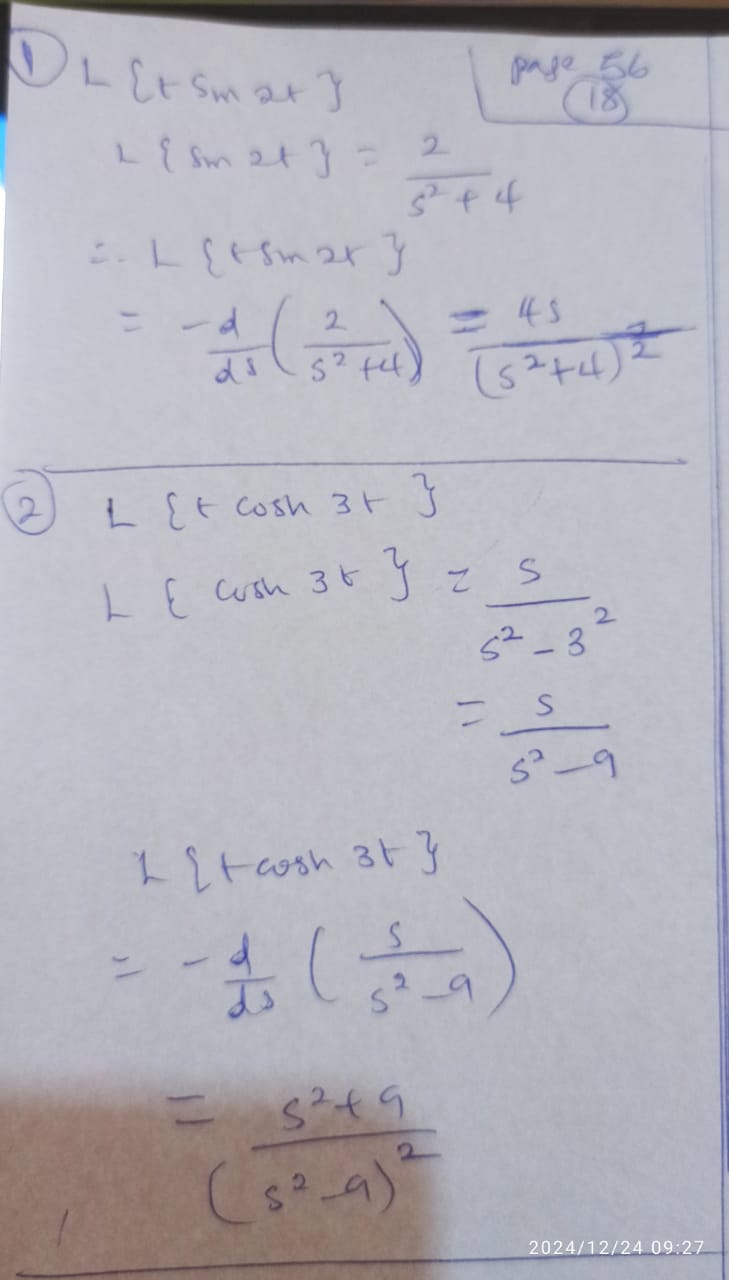 ① L {t sin 2t}
page 56
⑱
L {sin 2t} = 2 / (s² + 4)
∴ L {t sin 2t}
= -d/ds (2 / (s² + 4)) = 4s / (s² + 4)²
② L {t cosh 3t}
L {cosh 3t} = s / (s² - 3²)
= s / (s² - 9)
L {t cosh 3t}
= -d/ds (s / (s² - 9))
= (s² + 9) / (s² - 9)²
2024/12/24 09:27